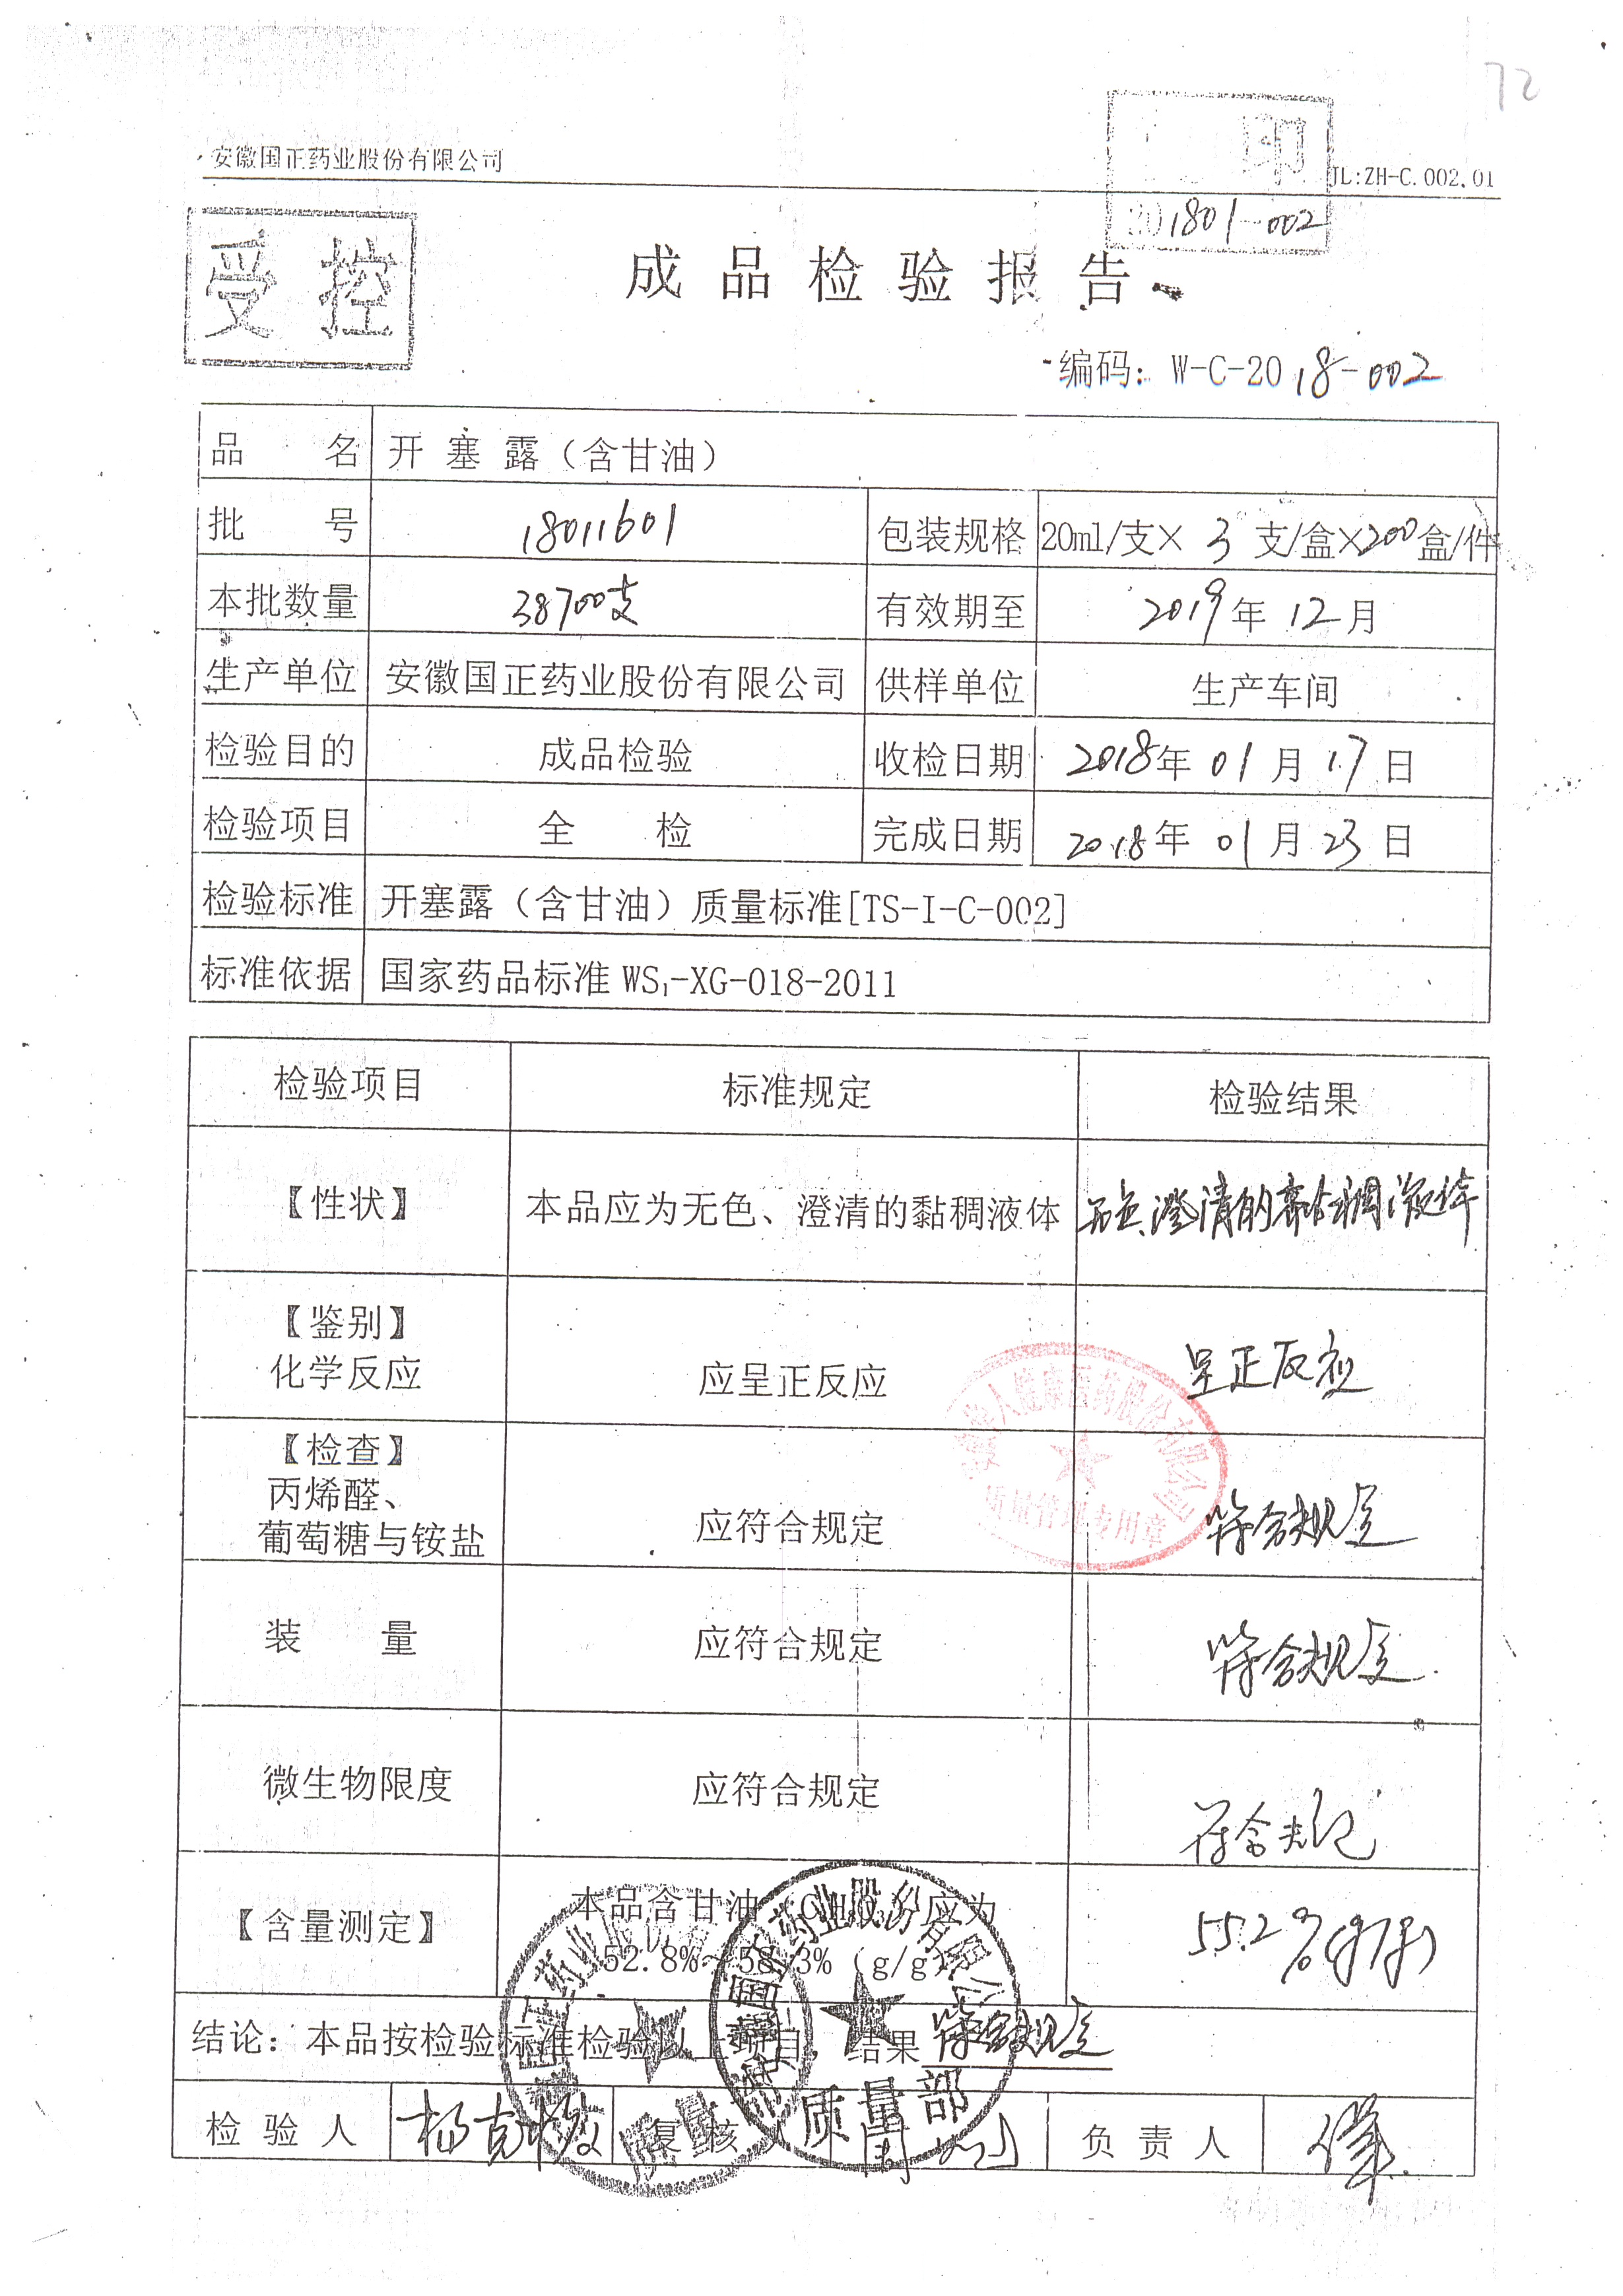 72
安徽国正药业股份有限公司
印
JL:ZH-C.002.01
201801-002
受控
成品检验报告
编码：W-C-2018-002
品 名 开塞露（含甘油）
批 号 18011601 包装规格 20ml/支×3支/盒×200盒/件
本批数量 38700支 有效期至 2019年12月
生产单位 安徽国正药业股份有限公司 供样单位 生产车间
检验目的 成品检验 收检日期 2018年01月17日
检验项目 全 检 完成日期 2018年01月23日
检验标准 开塞露（含甘油）质量标准[TS-I-C-002]
标准依据 国家药品标准 WS₁-XG-018-2011
检验项目 标准规定 检验结果
【性状】 本品应为无色、澄清的黏稠液体 无色、澄清的黏稠液体
【鉴别】
化学反应 应呈正反应 呈正反应
【检查】
丙烯醛、
葡萄糖与铵盐 应符合规定 符合规定
人健康医药股份有限公司
质量管理专用章
装 量 应符合规定 符合规定
微生物限度 应符合规定 符合规定
【含量测定】 本品含甘油（C₃H₈O₃）应为
52.8%～58.3%（g/g） 55.2%(g/g)
结论：本品按检验标准检验以上项目，结果 符合规定
国正药业股份有限公司
质量部
检验人 杨克 复核 负责人